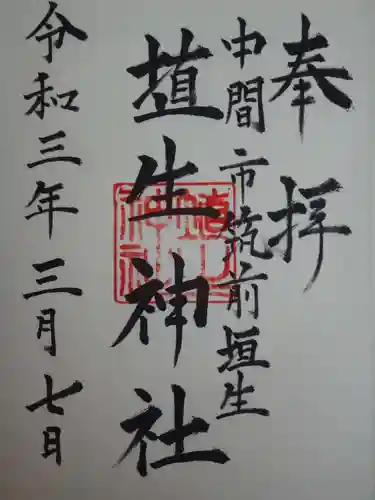 奉拝
中間市筑前垣生
埴生神社
令和三年三月七日